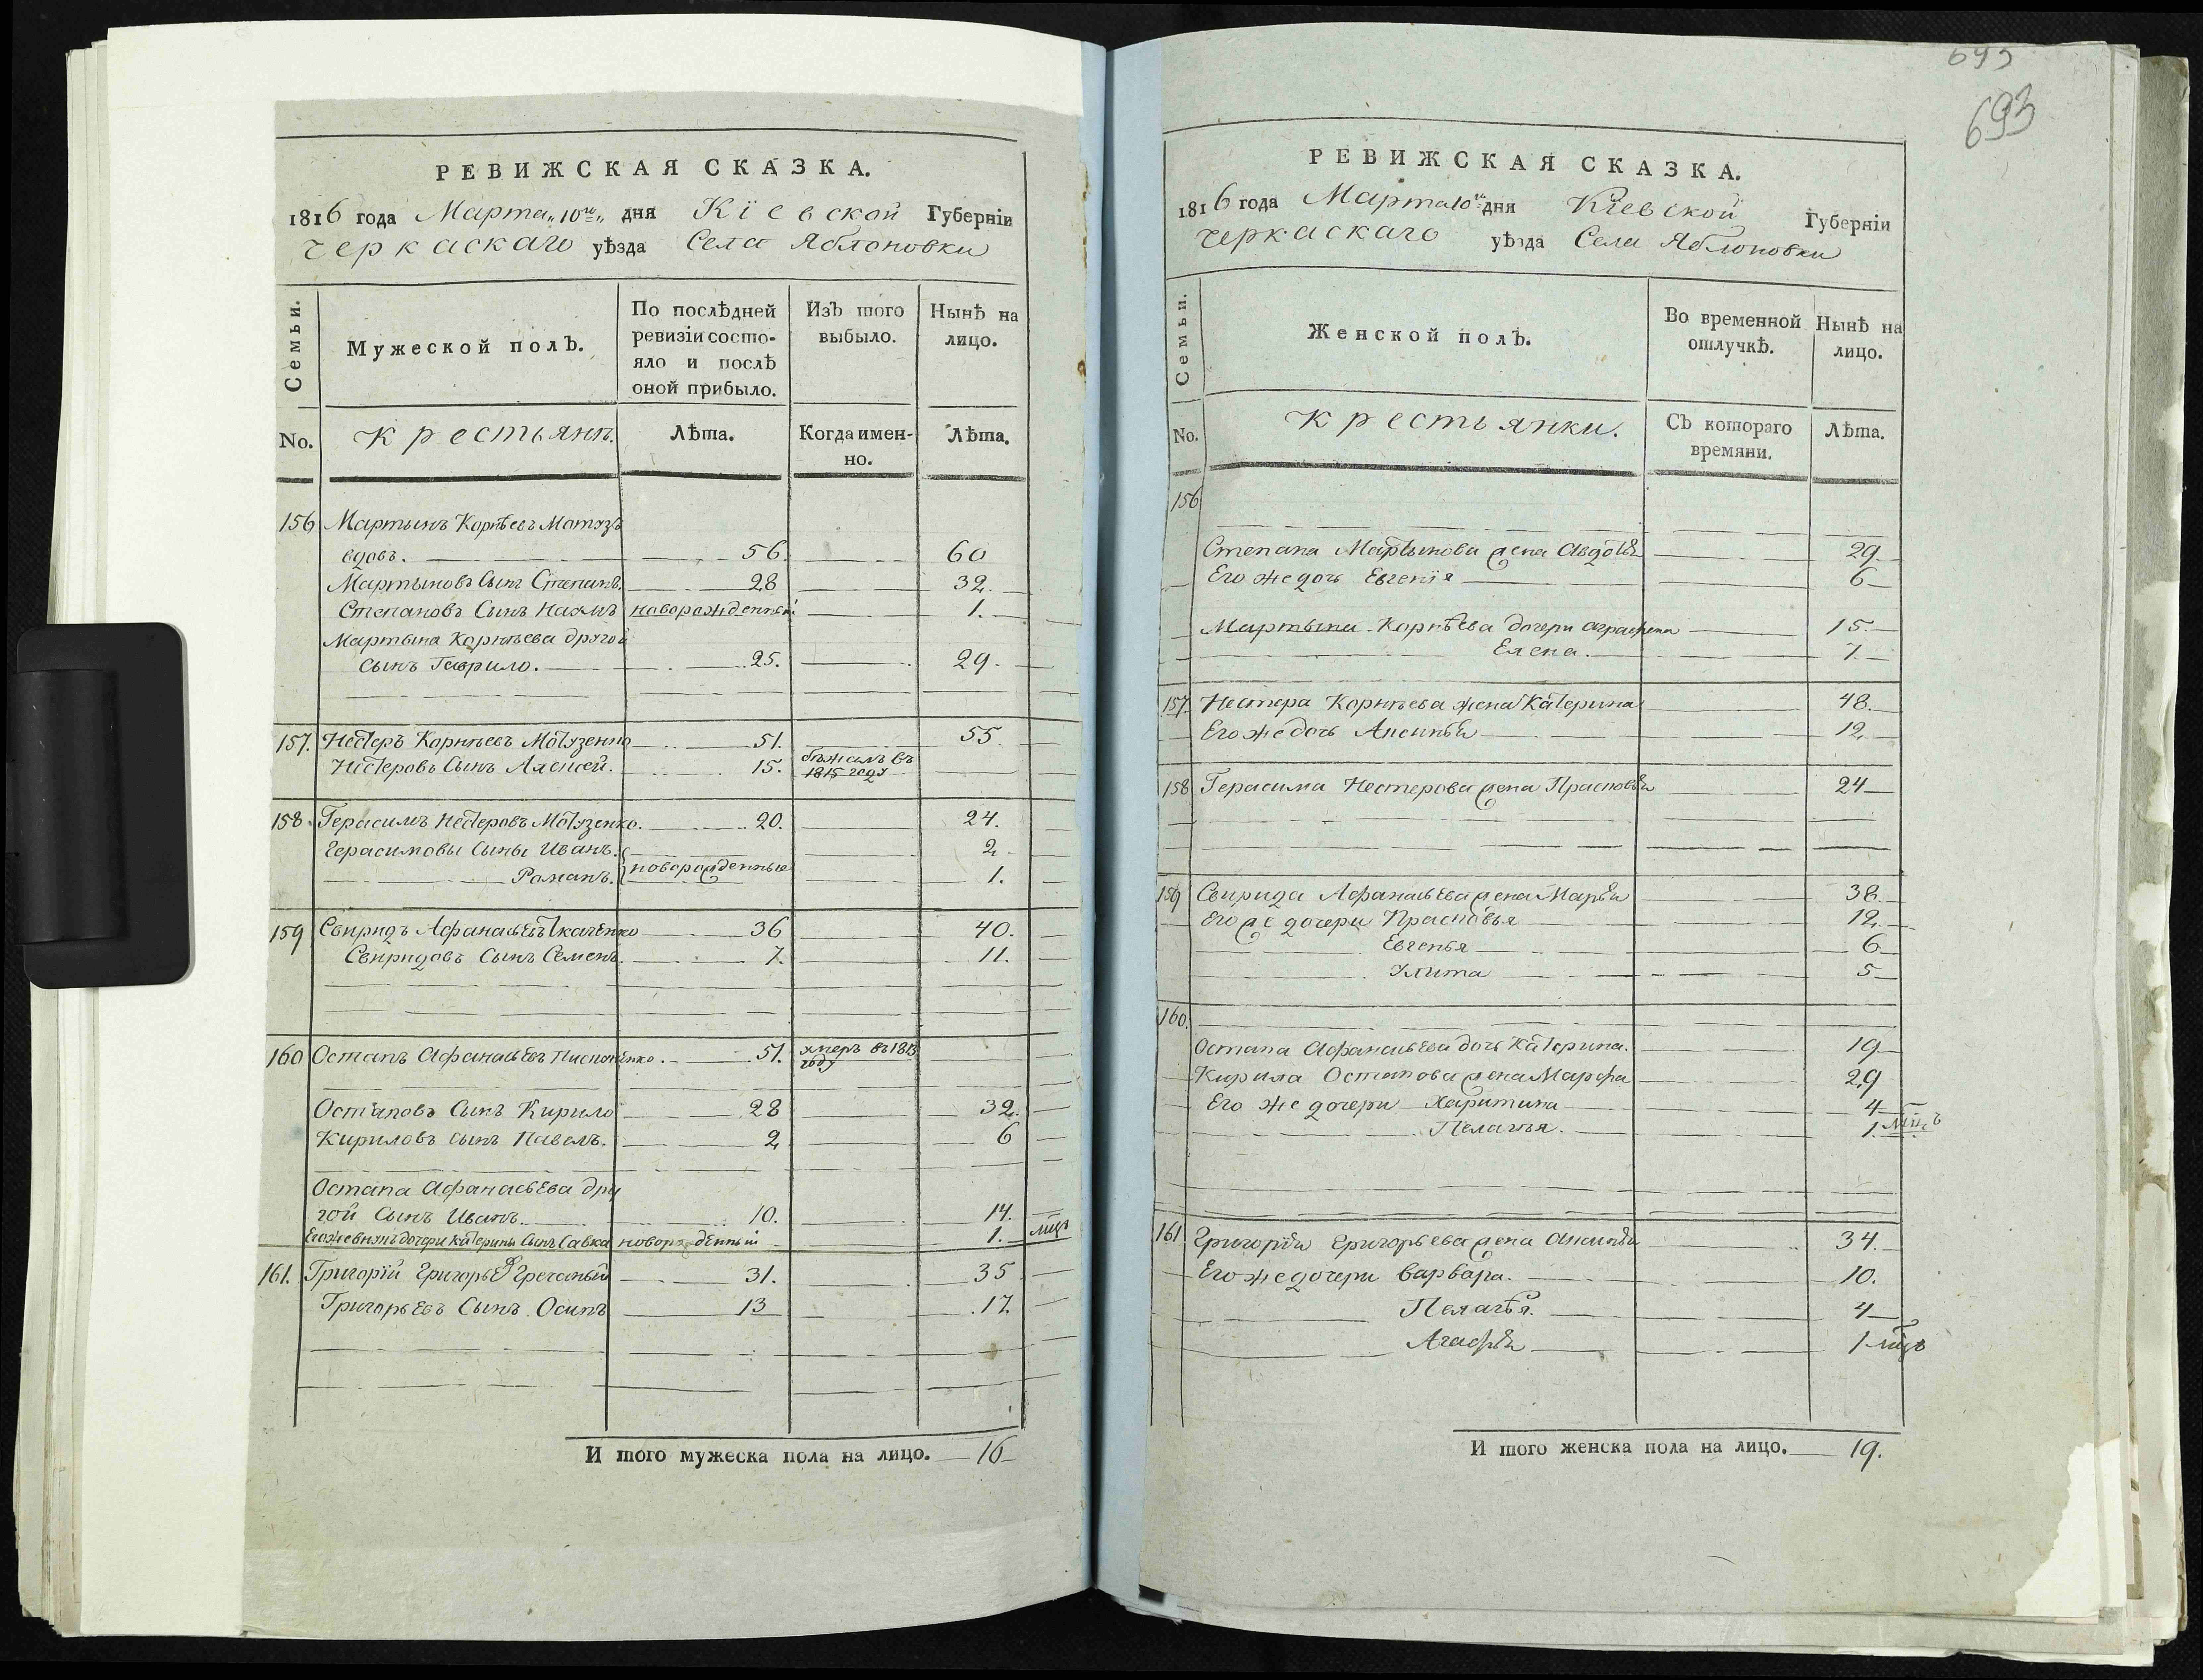 РЕВИЖСКАЯ СКАЗКА.
1816 года Марта „10го„ дня Кіевской Губерніи
Черкаскаго уѣзда Села Яблоновки
Семьи.
Мужеской полЪ.
По послѣдней
ревизіи состо-
яло и послѣ
оной прибыло.
ИзЪ того
выбыло.
НынѢ на
лицо.
No.
Крестьянъ.
ЛѢта.
Когда имен-
но.
ЛѢта.
156 Мартынъ Корнѣевъ Мотузъ
вдовъ. 56. 60
Мартыновъ Сынъ Степанъ. 28 32.
Степановъ Сынъ Наумъ новорожденный 1.
Мартына Корнѣева другой
сынъ Гаврило. 25. 29.
157. Нестеръ Корнѣевъ Мотузенко 51. 55.
Нестеровъ Сынъ Алексей. 15. бѣжалъ въ
1815 году
158. Герасимъ Нестеровъ Мотузенко. 20. 24.
Герасимовы Сыны Иванъ. 2.
Романъ. новорожденные 1.
159 Свиридъ Афанасьевъ Ткаченко 36 40.
Свиридовъ Сынъ Семенъ. 7. 11.
160 Остапъ Афанасьевъ 51. умеръ въ 1813
году
Остаповъ Сынъ Кирило 28 32.
Кириловъ сынъ Павелъ. 2 6
Остапа Афанасьева дру
гой Сынъ Иванъ. 10. 14.
Егожевнукъ дочери Катерины Сынъ Савка новорожденный 1. мцъ
161. Григорій Григорьевъ Гречаный 31. 35
Григорьевъ Сынъ Осипъ 13 17.
И того мужеска пола на лицо. 16
693
693
РЕВИЖСКАЯ СКАЗКА.
1816 года Марта 10го дня Кіевской Губерніи
Черкаскаго уѣзда Села Яблоновки
Семьи.
Женской полЪ.
Во временной
отлучкѢ.
НынѢ на
лицо.
No.
Крестьянки.
СЪ котораго
времяни.
ЛѢта.
156
Степана Мартынова жена Авдотья 29
Его же дочь Евгенія 6
Мартына Корнѣева дочери Аграфена 15.
Елена. 7.
157. Нестера Корнѣева жена Катерина 48.
Его же дочь Аксинья 12.
158 Герасима Нестерова жена Прасковья 24
159 Свирида Афанасьева жена Марья 38.
Его же дочери Прасковья 12.
Евгенья 6
Улита 5
160.
Остапа Афанасьева дочь Катерина. 19
Кирила Остапова жена Марфа 29
Его же дочери Харитина 4
Пелагья. 1. мцъ
161 Григорья Григорьева жена Аксинья 34.
Его же дочери Варвара. 10.
Пелагѣя. 4
Агафья 1 мцъ
И того женска пола на лицо. 19.